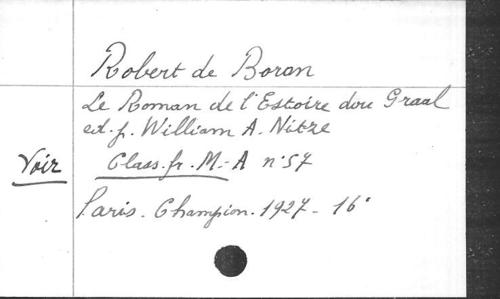 Robert de Boron
Le Roman de l'Estoire dou Graal
ed. p. William A. Nitze
Voir Class. fr. M.-A n° 57
Paris. Champion. 1927 - 16°